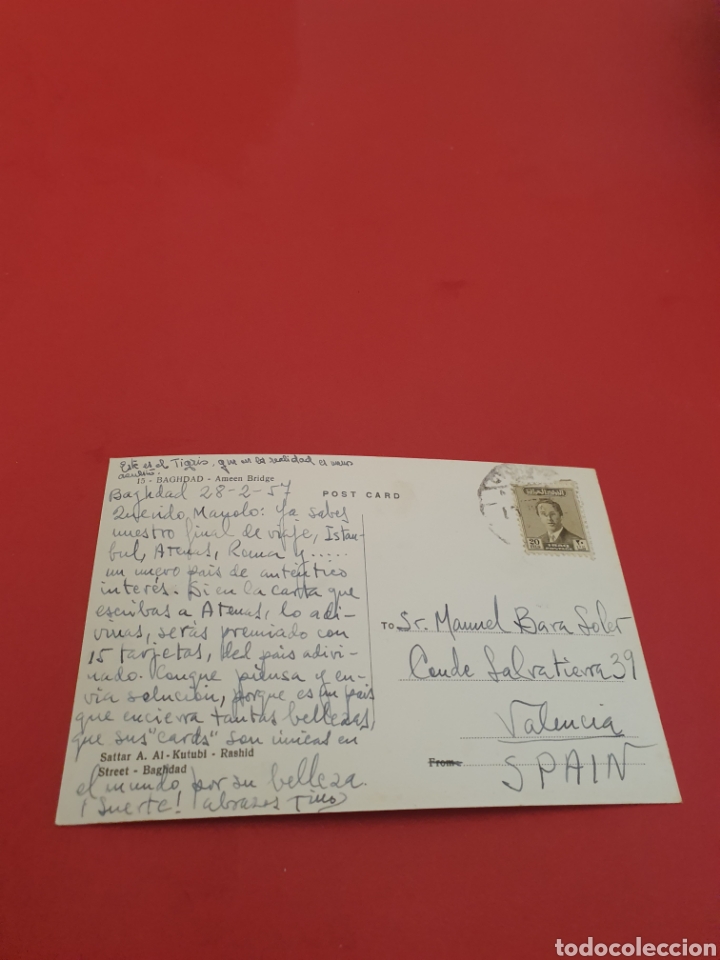 Este es el Tigris, que en la realidad es menos
15 - BAGHDAD - Ameen Bridge
Baghdad 28-2-57
POST CARD
Querido Manolo: Ya sabes
nuestro final de viaje, Istan-
bul, Atenas, Roma y .....
un nuevo pais de auténtico
interés. Si en la carta que
escribas a Atenas, lo adi-
vinas, serás premiado con
15 tarjetas, del pais adivi-
nado. Conque piensa y en-
via solución, porque es un pais
que encierra tantas bellezas,
que sus "cards" son únicas en
Sattar A. Al-Kutubi - Rashid
Street - Baghdad
el mundo por su belleza.
¡Suerte! abrazos Tino
TO Sr. Manuel Bara Soler
Conde Salvatierra 39
Valencia
From:
SPAIN
20
٢٠
todocoleccion